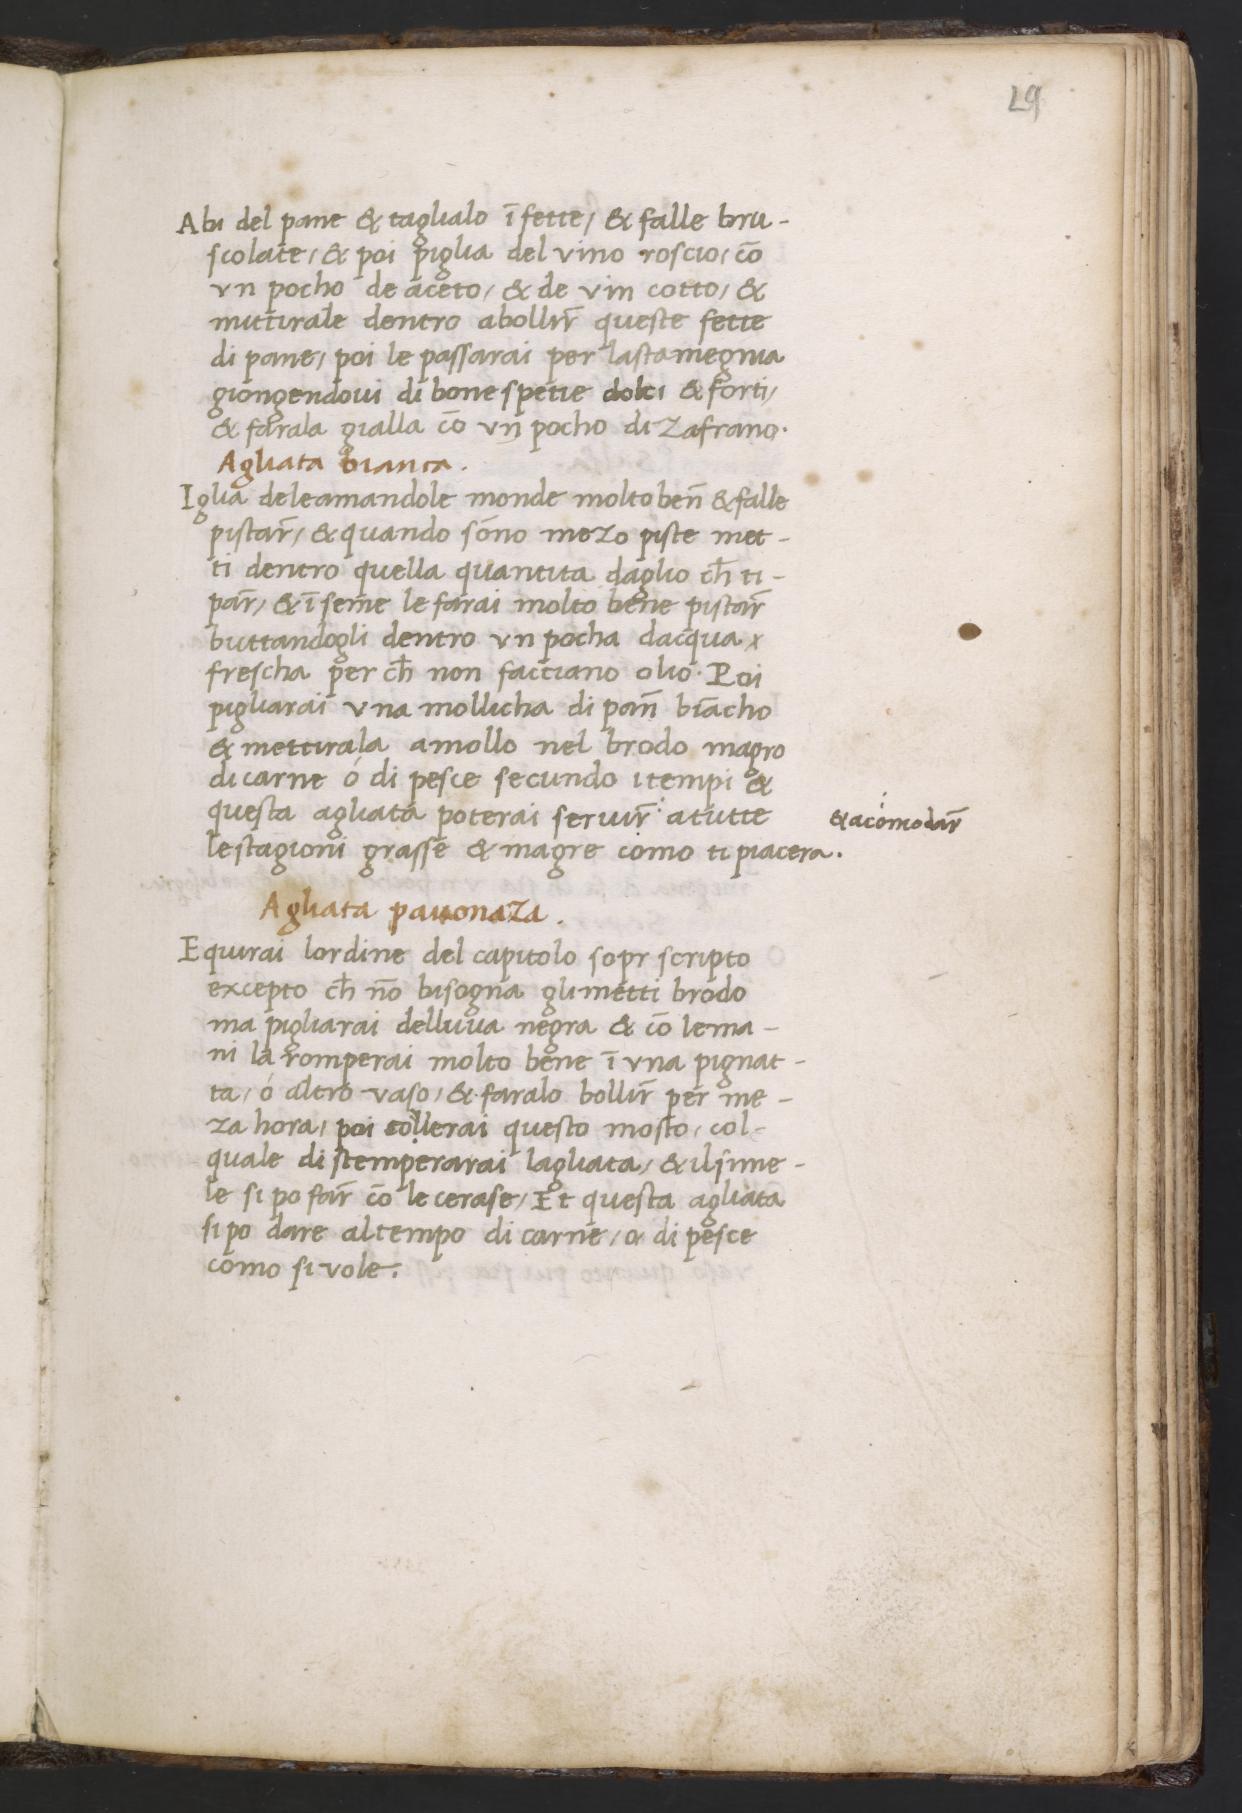 29
Abi del pane & taglialo ī fette, & falle bru-
scolate, & poi piglia del vino roscio, cō
vn pocho de aceto, & de vin cotto, &
mittirale dentro abollir̄ queste fette
di pane, poi le passarai per lastamegnia
giongendoui di bone spetie dolci & forti,
& farala gialla cō vn pocho di Zafrano.
Agliata bianca.
Iglia deleamandole monde molto ben̄ & falle
pistar̄, & quando sōno mezo piste met-
ti dentro quella quantita daglio ch̄ ti-
par̄, & ī seme le farai molto bene pistar̄
buttandogli dentro vn pocha dacqua x
frescha per ch̄ non facciano olio. Poi
pigliarai vna mollicha di pan̄ biācho
& mettirala amollo nel brodo magro
di carne ó di pesce secundo itempi &
questa agliata poterai seruir̄ atutte
& acōmodar̄
lestagioni grasse & magre como ti piacera.
Agliata pauonaza.
Equirai lordine del capitolo sopr scripto
excepto ch̄ nō bisogna glimetti brodo
ma pigliarai delluua negra & cō lema-
ni la romperai molto bene ī vna pignat-
ta, ó altro vaso, & faralo bollir̄ per me-
za hora, poi collerai questo mosto, col-
quale distemperarai lagliata, & ilsime-
le si po far̄ cō le cerase, Et questa agliata
si po dare altempo di carne, o di pesce
como si vole.